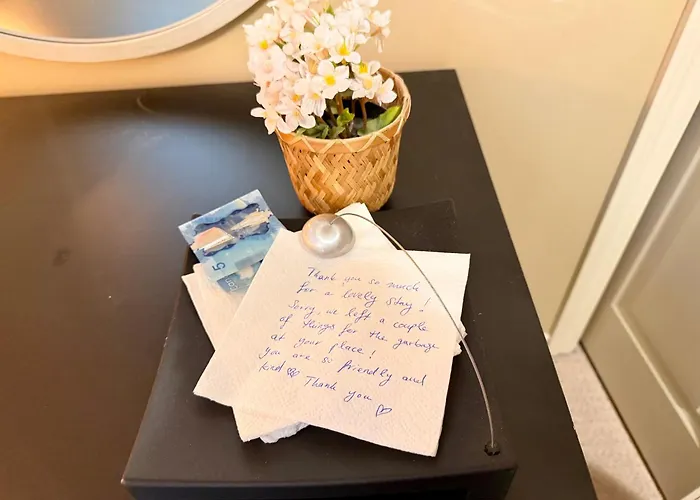 5
Thank you so much
for a lovely stay!
Sorry, we left a couple
of things for the garbage
at your place!
You are so friendly and
kind ♡ Thank you
♡